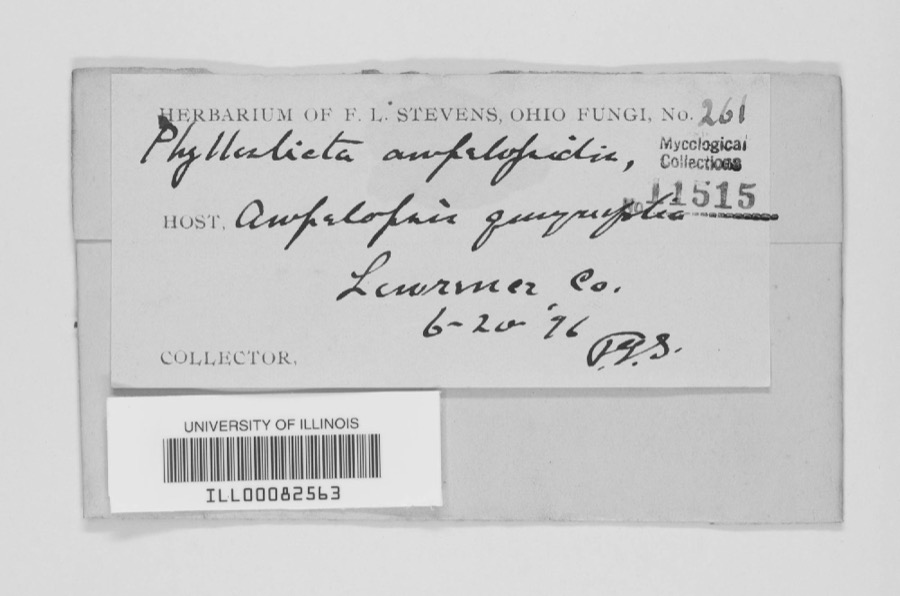 HERBARIUM OF F. L. STEVENS, OHIO FUNGI, No. 261
Phyllosticta ampelopsidis,
Mycological
Collections
No. 11515
HOST, Ampelopsis quinquefolia
Lawrence Co.
6-20 '96
COLLECTOR, F.L.S.
UNIVERSITY OF ILLINOIS
ILL00082563